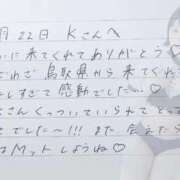 月22日 Kさんへ
いに来てくれてありがとう♡
ざわざ鳥取県から来てくれ
しすぎて感動でしたい♡
くんくっついていられてとっ
でした〜!!! また会えたら
はMットしようね♡